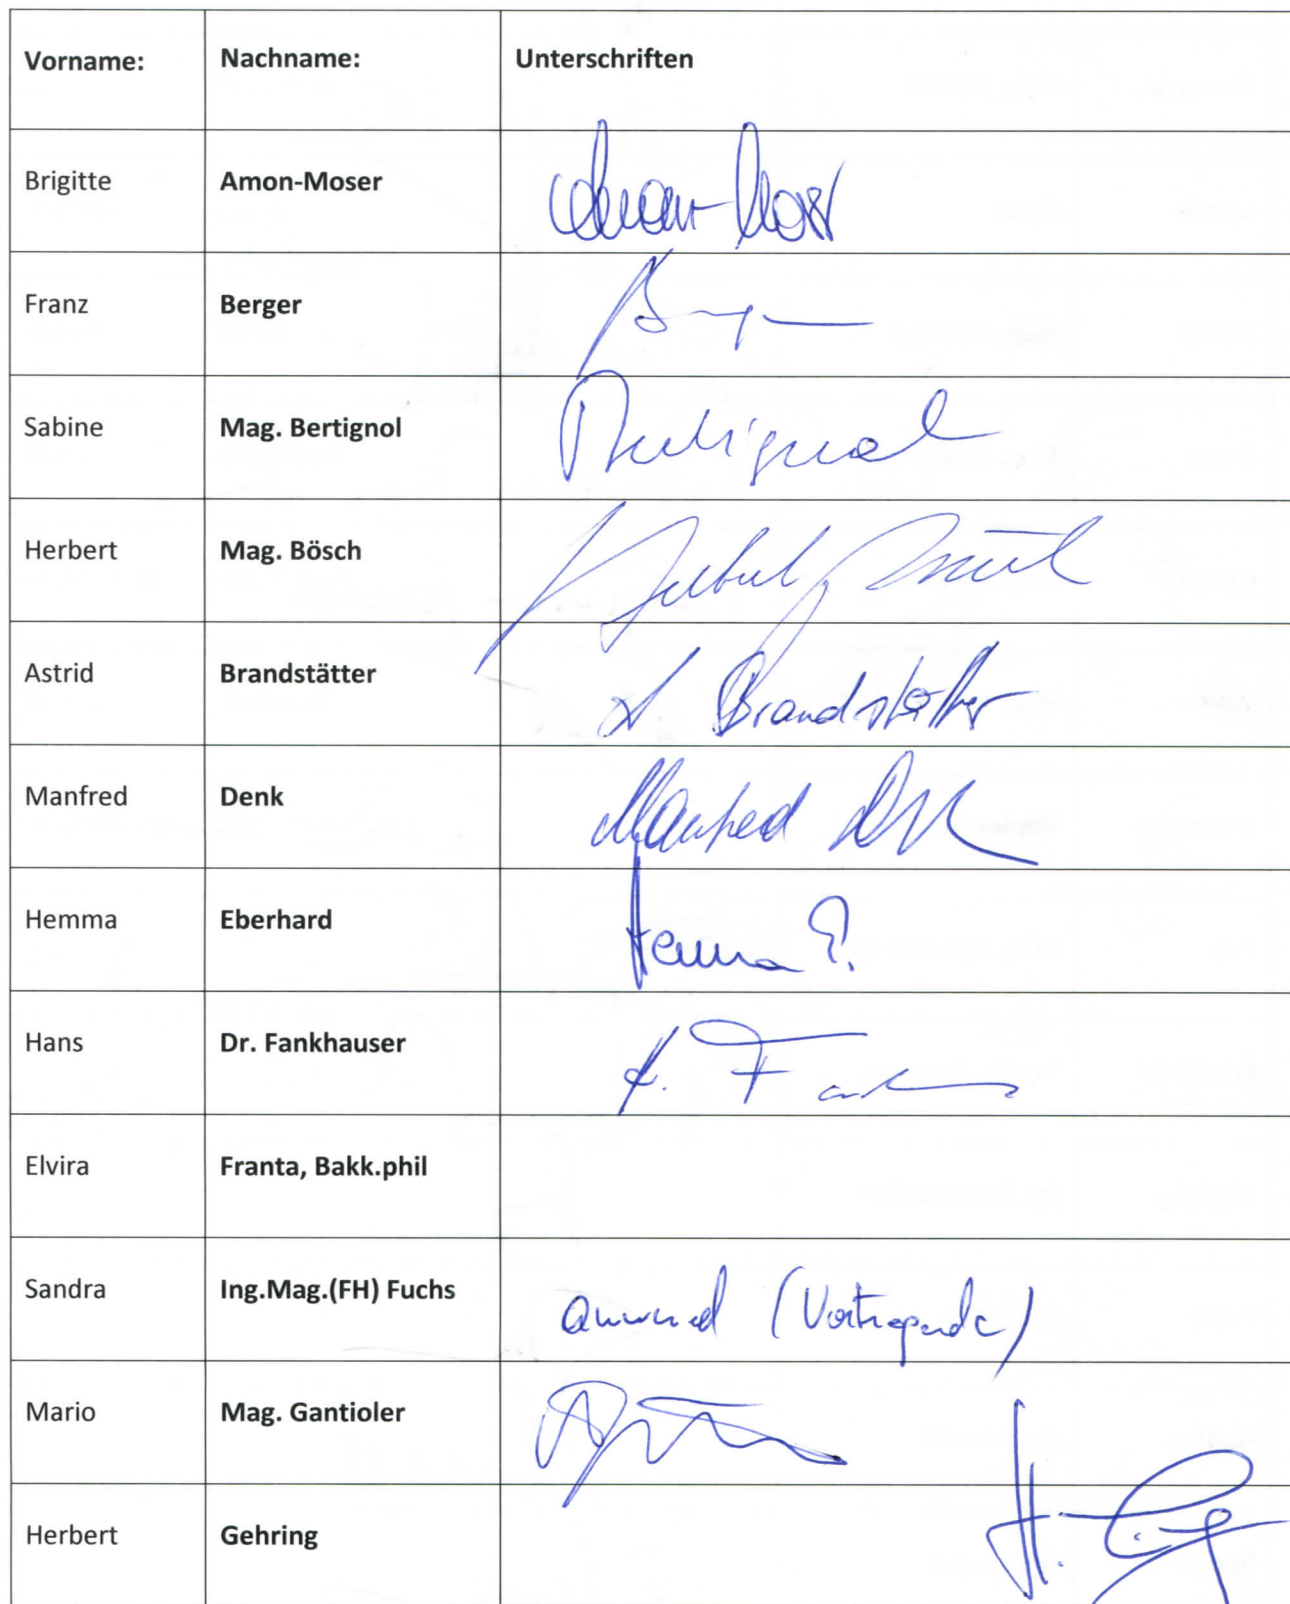 Vorname: Nachname: Unterschriften
Brigitte Amon-Moser Amon-Moser
Franz Berger
Sabine Mag. Bertignol Bertignol
Herbert Mag. Bösch Herbert Bösch
Astrid Brandstätter A Brandstätter
Manfred Denk Manfred Denk
Hemma Eberhard Hemma E.
Hans Dr. Fankhauser
Elvira Franta, Bakk.phil
Sandra Ing.Mag.(FH) Fuchs anwesend (Vortragende)
Mario Mag. Gantioler
Herbert Gehring H.